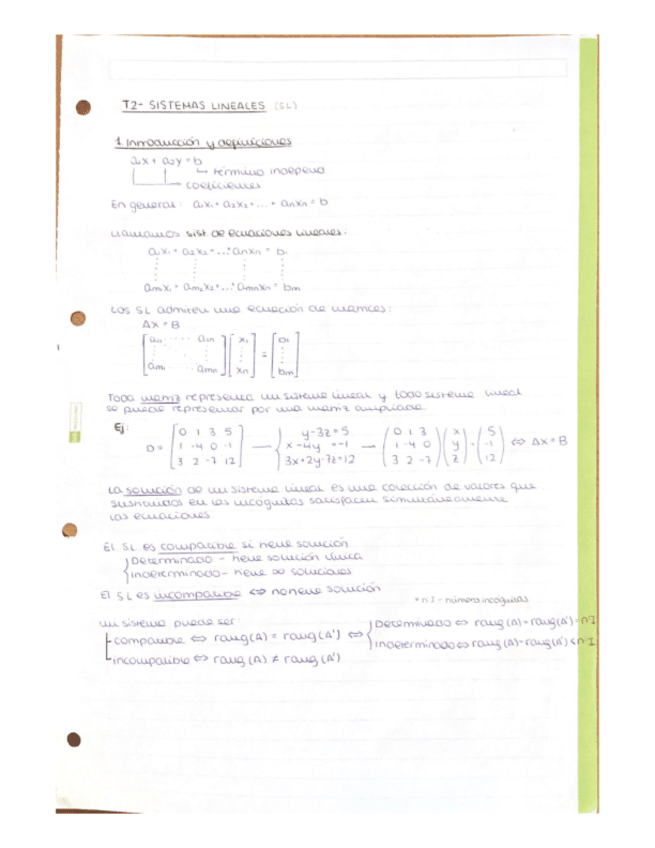 T2- SISTEMAS LINEALES (SL)
1. Introducción y definiciones
a₁x + a₂y = b
↳ término independ
coeficientes
En general: a₁x₁ + a₂x₂ + ... + aₙxₙ = b
Llamamos sist. de ecuaciones lineales:
a₁x₁ + a₂x₂ + ... + aₙxₙ = b₁
⋮ ⋮ ⋮ ⋮
aₘ₁x₁ + aₘ₂x₂ + ... + aₘₙxₙ = bₘ
Los SL admiten una ecuación de matrices:
AX = B
[a₁₁ ... a₁ₙ] [x₁] = [b₁]
[aₘ₁ ... aₘₙ] [xₙ] [bₘ]
Toda matriz representa un sistema lineal y todo sistema lineal
se puede representar por una matriz ampliada.
Ej:
[0 1 3 5] { y-3z=5 (0 1 3) (x) (5)
D = [1 -4 0 -1] — { x-4y =-1 — (1 -4 0) (y) = (-1) ⇔ AX = B
[3 2 -7 12] { 3x+2y-7z=12 (3 2 -7) (z) (12)
La solución de un sistema lineal es una colección de valores que
sustituidos en las incógnitas satisfacen simultáneamente
las ecuaciones.
El SL es compatible si tiene solución
Determinado - tiene solución única
Indeterminado - tiene ∞ soluciones
El SL es incompatible ⇔ no tiene solución
* nºI - número incógnitas
Un sistema puede ser:
compatible ⇔ rang(A) = rang(A') ⇔ { Determinado ⇔ rang(A) = rang(A') = nºI
Indeterminado ⇔ rang(A) = rang(A') < nºI
incompatible ⇔ rang(A) ≠ rang(A')